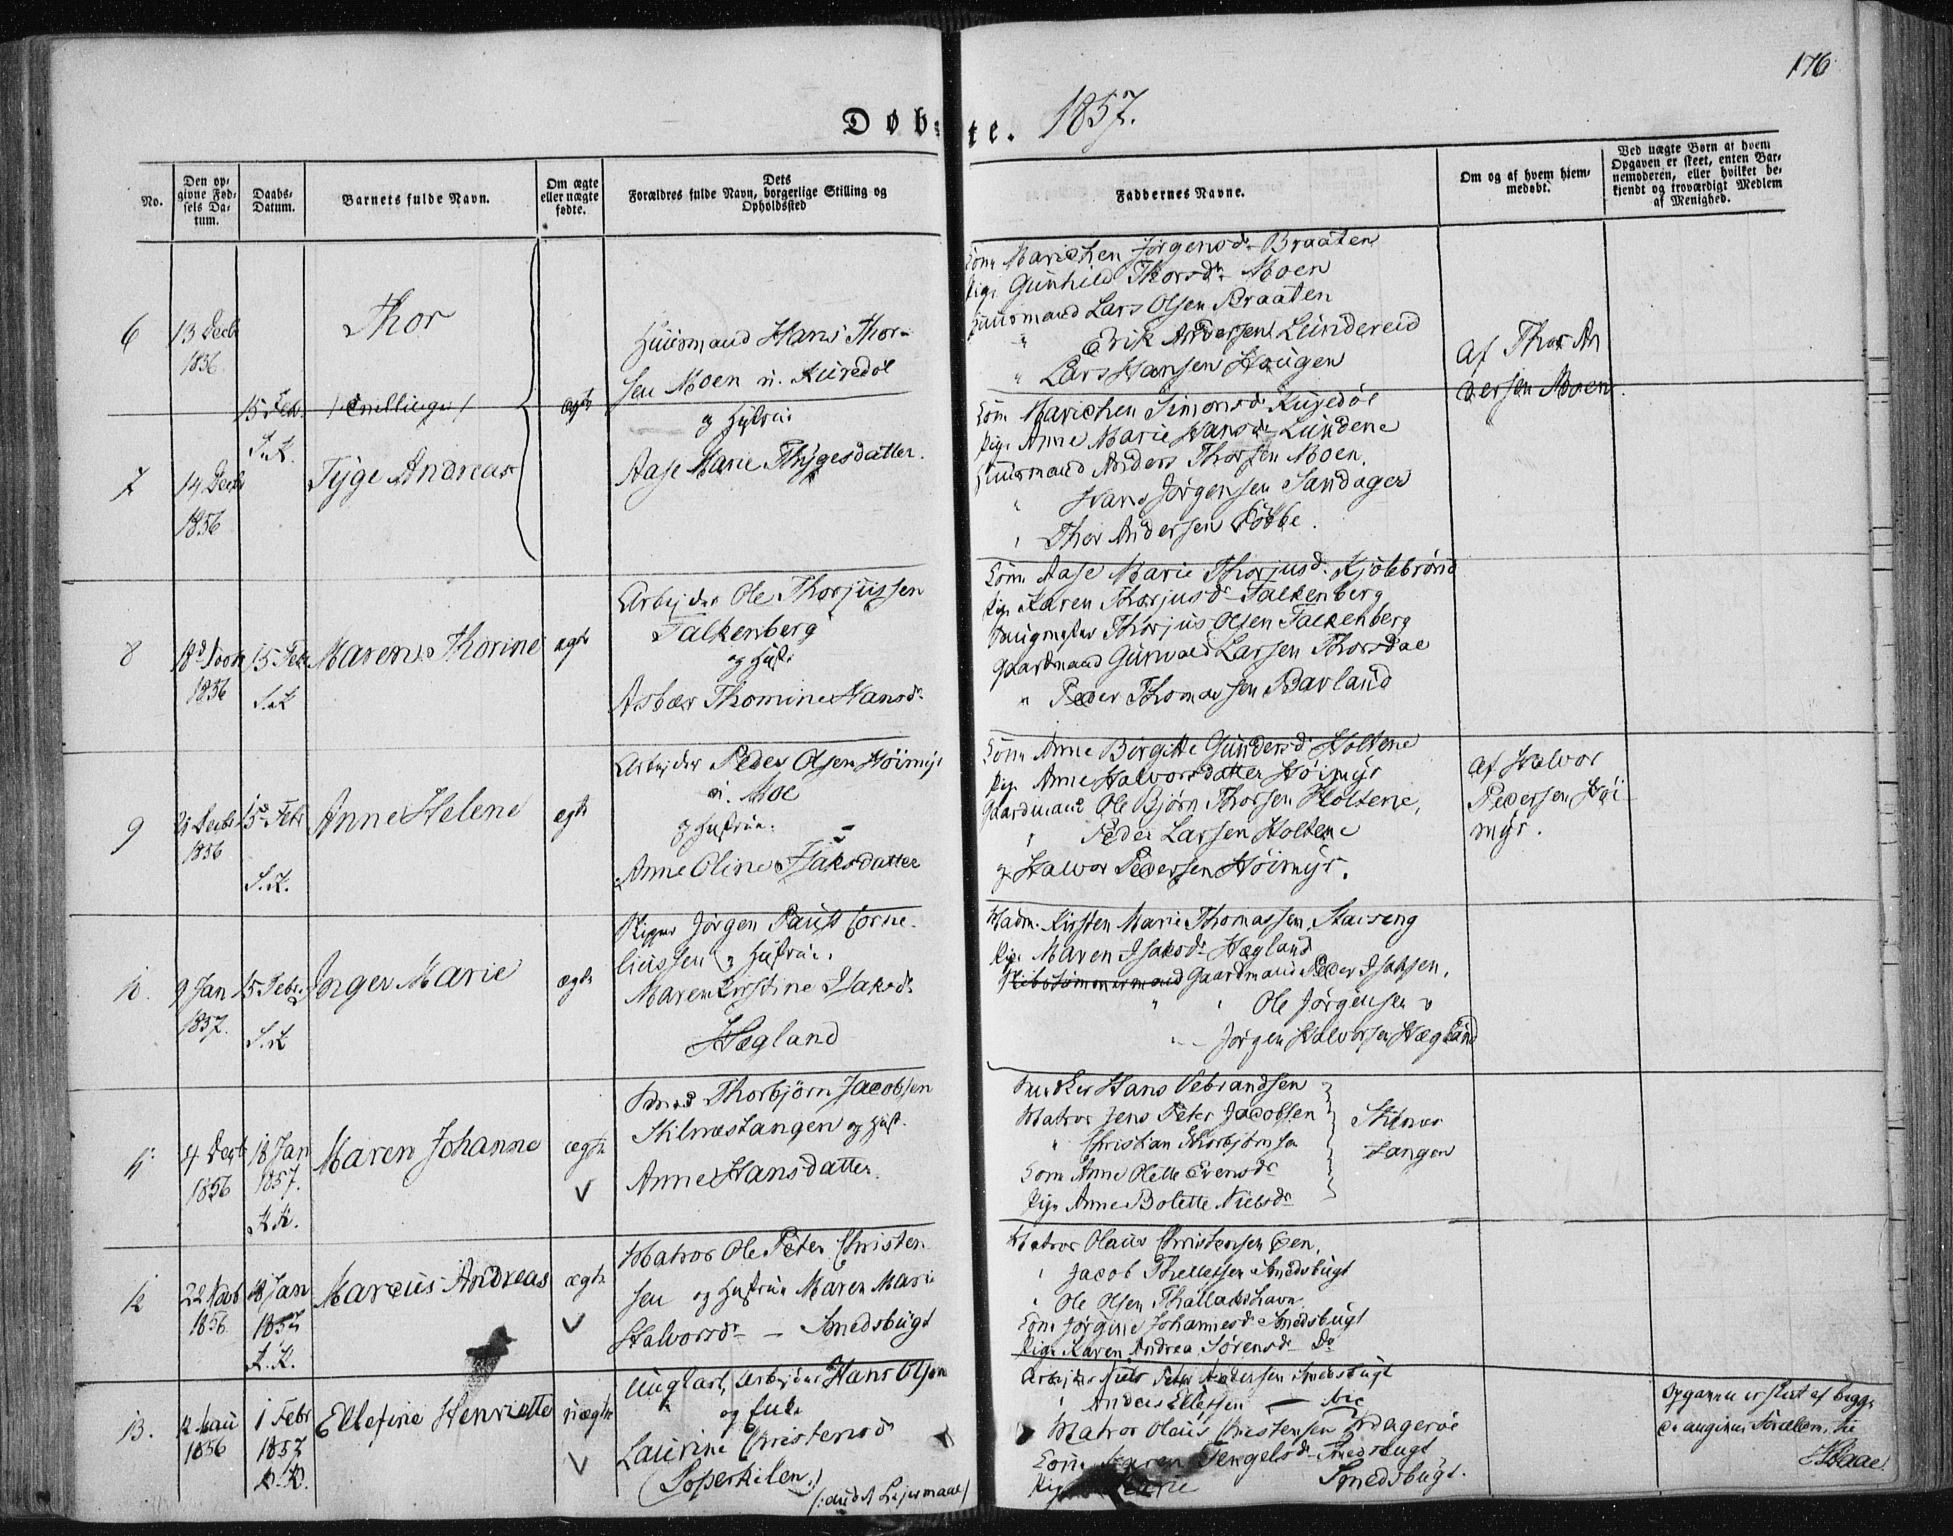 176
Døbte. 1857.
No.
Den opgivne Fødsels Datum.
Daabs-Datum.
Barnets fulde Navn.
Om ægte eller uægte fødte.
Dets Forældres fulde Navn, borgerlige Stilling og Opholdssted
Faddernes Navne.
Om og af hvem hjemmedøbt.
Ved uægte Børn af hvem Opgaven er skeet, enten Barnemoderen, eller hvilket bekjendt og troværdigt Medlem af Menighed.
6
13 Decb
1856
Thor
Huusmand Hans Thor-
sen Moen u.
og Hustrue
Aase Marie Thygesdatter.
Kone Marichen Jørgensd. Braaten
Pige Gunhild Thorsdr Moen
Huusmand Lars Olsen Braaten
" Erik Andersen Lundereid
" Lars Hansen Haugen
af Thor An
dersen Moen
15 Feb.
S.K.
ægte
7
14 Decb
1856
Tyge Andreas
Kone Marichen Simonsd.
Pige Anne Marie Hansdr Lundene
Huusmand Anders Thorsen Moen.
" Hans Jørgensen Sandager
" Thor Andersen
8
1856
15 Feb
S.K
Maren Thorine
ægte
Arbejder Ole Thorjussen
Falkenberg
og Hust.
Asbær Thomine Hansdr
Kone Aase Marie Thorjusd. Kjølebrønd
Pige Karen Thorjusd Falkenberg
Thorjus Olsen Falkenberg
Gaardmand Gunvald Larsen Thorsdal
" Peder Thomassen Barland
9
21 Decbr
1856
15 Feb
S.K.
Anne Helene
ægte
Arbejder Peder Olsen Høimyr
u. Moe
og Hustrue.
Anne Oline Isaksdatter
Kone Anne Birgitte Gundersd. Holtene
Pige Anne Halvorsdatter Høimyr
Gaardmand Ole Bjørn Thorsen Holtene,
" Peder Larsen Holtene
og Halvor Pedersen Høimyr.
af Halvor
Pedersen Høi-
myr.
10.
9 Jan
1857.
15 Febr.
S.K
Inger Marie
ægte
Skipper Jørgen Paust Corne-
liussen og Hustrue.
Maren Kirstine Isaksdr
Hægland
Madm. Kirsten Marie Thomassen
Pige Maren Isaksdr Hægland
Skibstømmermand Gaardmand Peder Isaksen,
" " Ole Jørgensen
" Jørgen Halvorsen Hægland
11.
4 Decb
1856
18 Jan
1857.
K.K.
Maren Johanne
ægte
Thorbjørn Jacobsen
Stilnæstangen og Hust.
Anne Hansdatter.
Hans Vebrandsen
Matros Jens Peter Jacobsen
" Christian Thorbjørnsen
Kone Anne Olette Evensdr
Pige Anne Bolette Nielsdr
Stilnæs
tangen
12
22 Novb
1856
18 Jan
1857
K.K.
Marcus Andreas
ægte
Matros Ole Peter Christen-
sen og Hustrue Maren Marie
Halvorsdr — Smedsbugt
Matros Olaus Christensen Øen.
" Jacob Thellefsen Smedsbugt
" Ole Olsen Thallakshavn
Kone Jørgine Johannesd Smedsbugt
Pige Karen Andrea Sørensd Do
13.
12 Mai
1856
1 Febr
1857
K.K.
Ellefine Henriette
uægte
Ungkarl, Arbejder Hans Olsen
og Enke
Laurine Christensdr
(Soperkilen.)
(: andet Leiermaal)
Arbejder Niels Peter Andersen Smedsbugt
" Anders Ellefsen
Matros Olaus Christensen
Kone Karen Tengelsd Smedsbugt
Pige Marie Smedsbugt.
Opgaven er skeet af begge
de angivne Forældre, til